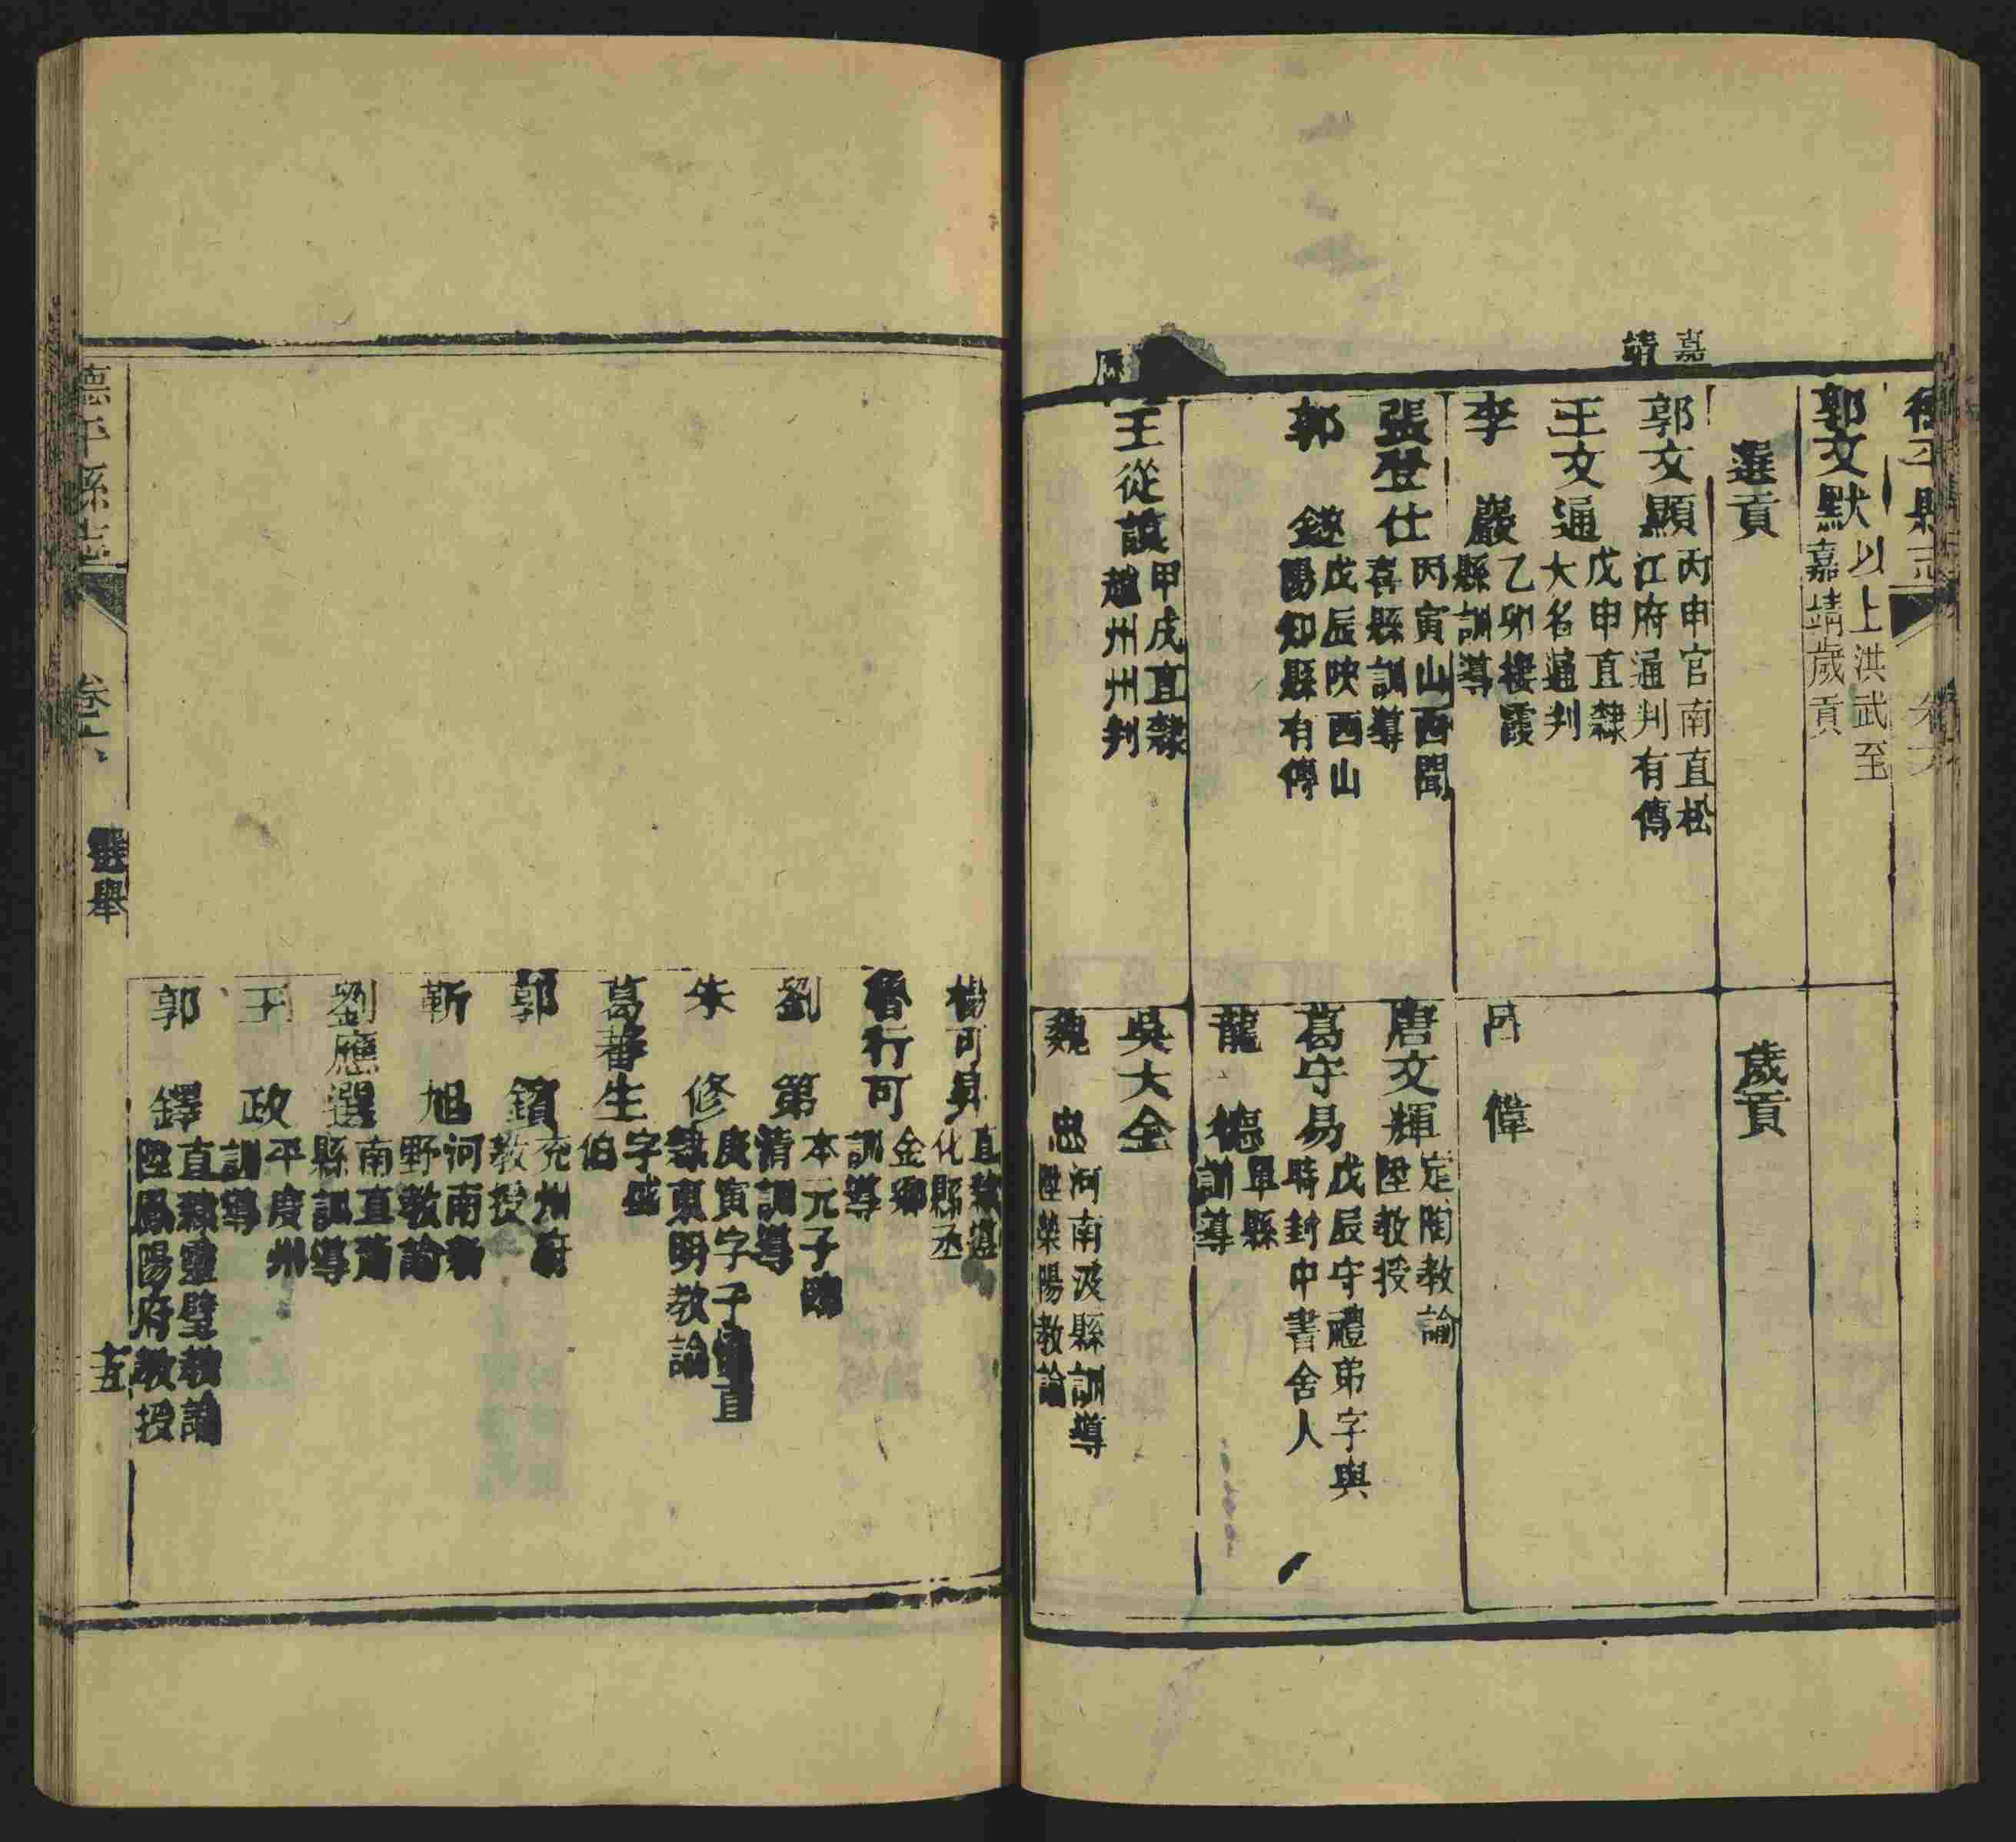 德平縣志
卷六
郭文默以上洪武至
嘉靖歲貢
選貢
歲貢
嘉
靖
郭文顯丙申官南直松
江府通判有傳
王文通戊申直隸
大名通判
李巖乙卯棲霞
縣訓導
呂偉
張登仕丙寅山西聞
喜縣訓導
郭鏠戊辰陝西山
陽知縣有傳
唐文輝定陶教諭
陞教授
葛守易戊辰守禮弟字與
時封中書舍人
龍德單縣
訓導
王從謨甲戌直隸
趙州州判
吳大全
魏忠河南汲縣訓導
陞榮陽教諭
楊可昇直隸遵
化縣丞
魯行可金鄉
訓導
劉第本元子臨
清訓導
朱修庚寅字子
隸東明教諭
葛蕃生字盛
伯
郭鑌兗州府
教授
靳旭河南新
野教諭
劉應選南直蕭
縣訓導
王政平度州
訓導
郭鐸直隸靈璧教諭
陞鳳陽府教授
德平縣志
卷六
選舉
十五